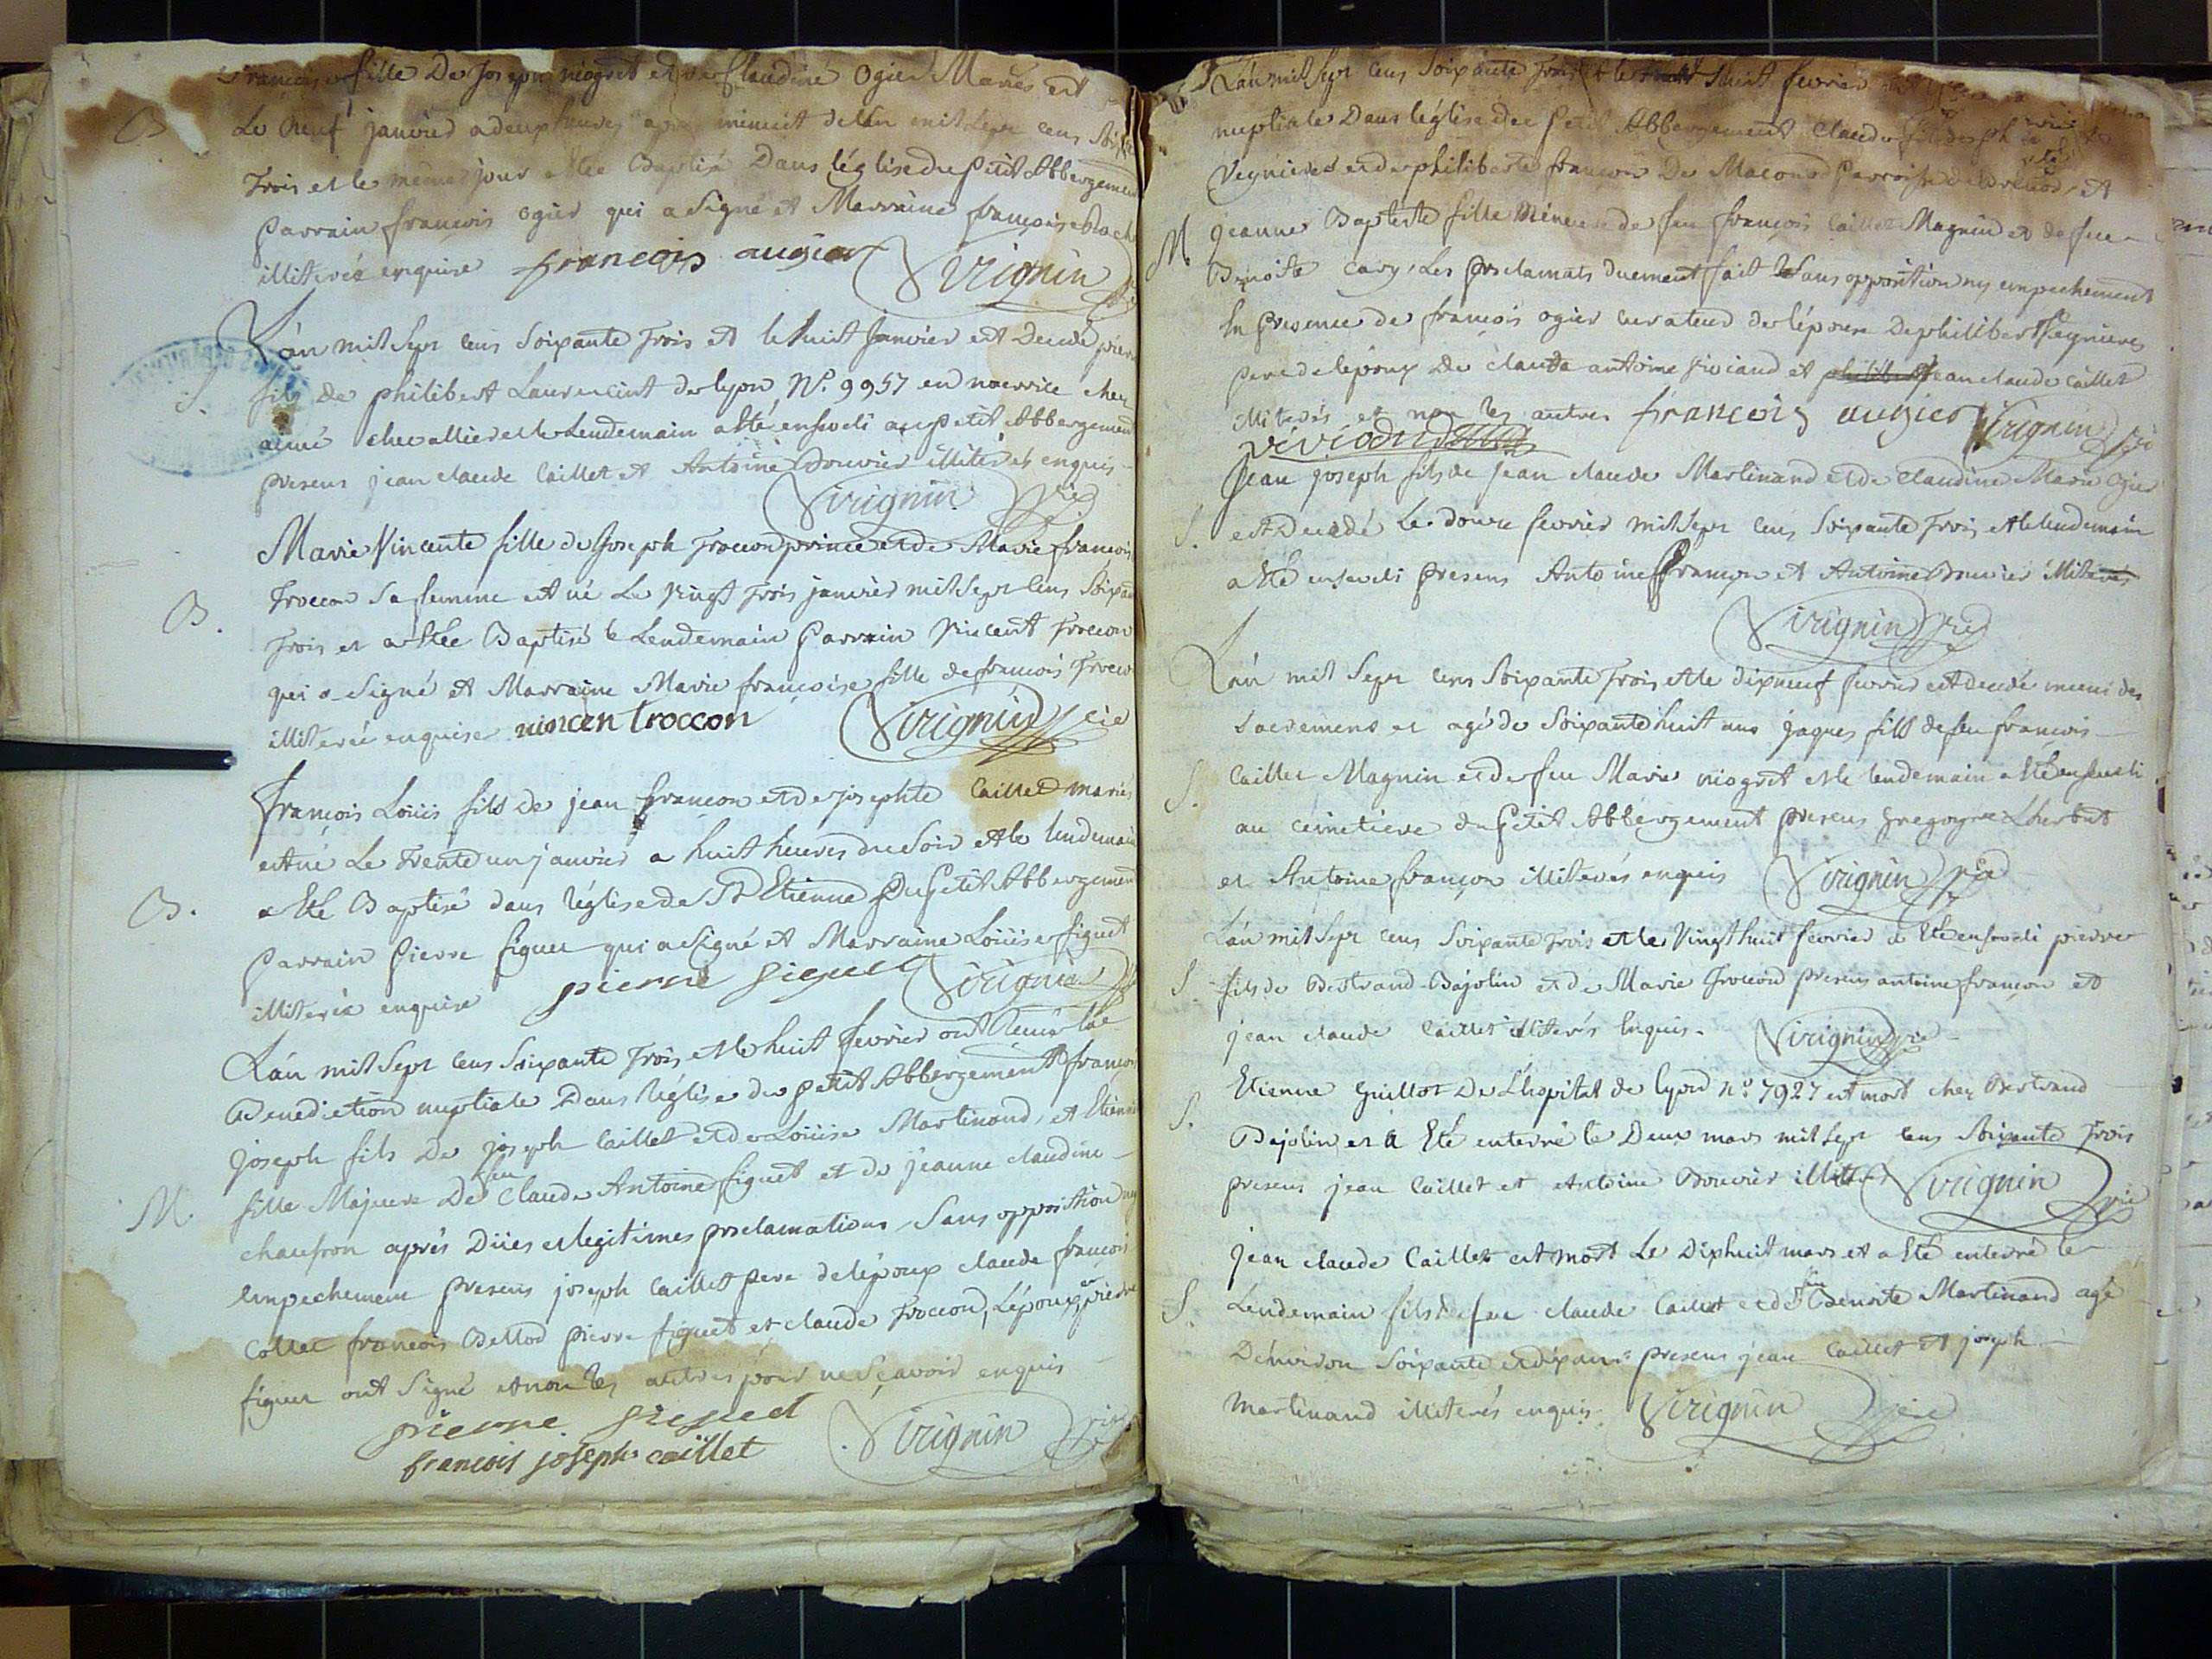 francoise fille De Joseph niogret et de Claudine Ogier Mariés est
B
Le Neuf janvier a deux heures apres minuit de l'an mil sept cens
Trois et le meme jour a Etee Baptisé Dans léglise du Petit Abbergement
Parrain francois ogier qui a Signé et Marraine francoise
illiterée enquise francois augier Virignin
L'an mil sept cens Soixante Trois et le huit Janvier est Decedé pierre
S. fils de philibert Laurencint de lyon N°. 9957 en nourrice chez
aimé chevallier et le Lendemain a Eté enseveli au petit Abbergement
presens jean claude Caillet et Antoine Bouvier illiterés enquis
Virignin
Marie Vincente fille de Joseph Troccon prince et de Marie francoise
B.
Troccon Sa femme est né Le Vingt Trois janvier mil sept cens Soixante
Trois et a Etee Baptisé le Lendemain Parrain Vincent Troccon
qui a Signé et Marraine Marie francoise fille de francois Troccon
illiterée enquise vincen troccon Virignin
francois Loüis fils de jean françon et de josephte Caillet mariés
est né Le Trente un janvier a huit heures du Soir et le lendemain
B.
a Eté Baptisé dans léglise de St Etienne Du Petit Abbergement
Parrain Pierre figuet qui a Signé et Marraine Loüise figuet
illiterée enquise pierre Siguet Virignin
L'an mil sept cens Soixante Trois et le huit fevrier ont Recu la
Benediction nuptiale Dans léglise du petit Abbergement francois
joseph fils De joseph Caillet et de Loüise Martinand, et Etienne
M.
fille Majeure De feu Claude Antoine figuet et de jeanne claudine
chaufron aprés Düës et legitimes proclamations Sans opposition ny
Empechement presens joseph Caillet pere de lépoux claude francois
Collet francois Bellod pierre figuet et claude Troccon, Lépoux et pierre
figuet ont Signé et non les autres pour ne Sçavoir enquis
pierre Sieguet
francois joseph caillet Virignin
L'an mil sept cens Soixante Trois et le huit fevrier
nuptiale Dans léglise du Petit Abbergement Claude fils de
Veynieres et de philiberte françon De Maconod Parroisse de et
M.
jeanne Baptiste fille Mineure de feu françois Caillet Magnin et de feu
Benoite Cary, Les proclamats duement fait Sans opposition ny empechement
En presence de francois ogier curateur de lépouse De philibert Veynieres
pere de lépoux De claude antoine Viviand et jean claude Caillet
illiterés et non les autres francois augier Virignin
viviand
Jean joseph fils de jean claude Martinand et de claudine Marie Ogier
S.
est Decedé Le douze fevrier mil sept cens Soixante Trois et le lendemain
a Eté enseveli presens Antoine françon et Antoine Bouvier illiterés
Virignin
L'an mil sept cens Soixante Trois et le dixneuf fevrier est decedé muni des
Sacremens et agé de Soixante huit ans jaques fils de feu francois
S.
Caillet Magnin et de feu Marie niogret et le lendemain a Eté enseveli
au cimetiere du Petit Abbergement presens gregoyre Lherbet
et Antoine françon illiterés enquis Virignin
L'an mil sept cens Soixante Trois et le Vingt huit fevrier a Eté enseveli pierre
S. fils de Bertrand Bajolin et de Marie Troccon presens antoine françon et
jean claude Caillet illiterés Enquis. Virignin
Etienne Guillot De L'hopital de lyon n°. 7927 est mort chez Bertrand
S.
Bajolin et a Eté enterré le Deux mars mil sept cens Soixante Trois
presens jean Caillet et Antoine Bouvier Virignin
jean claude Caillet est mort Le Dixhuit mars et a Eté enterré le
S.
Lendemain fils de feu claude Caillet et de feu Benoite Martinand agé
D'environ Soixante et dix ans presens jean Caillet et joseph
Martinand illiterés enquis. Virignin